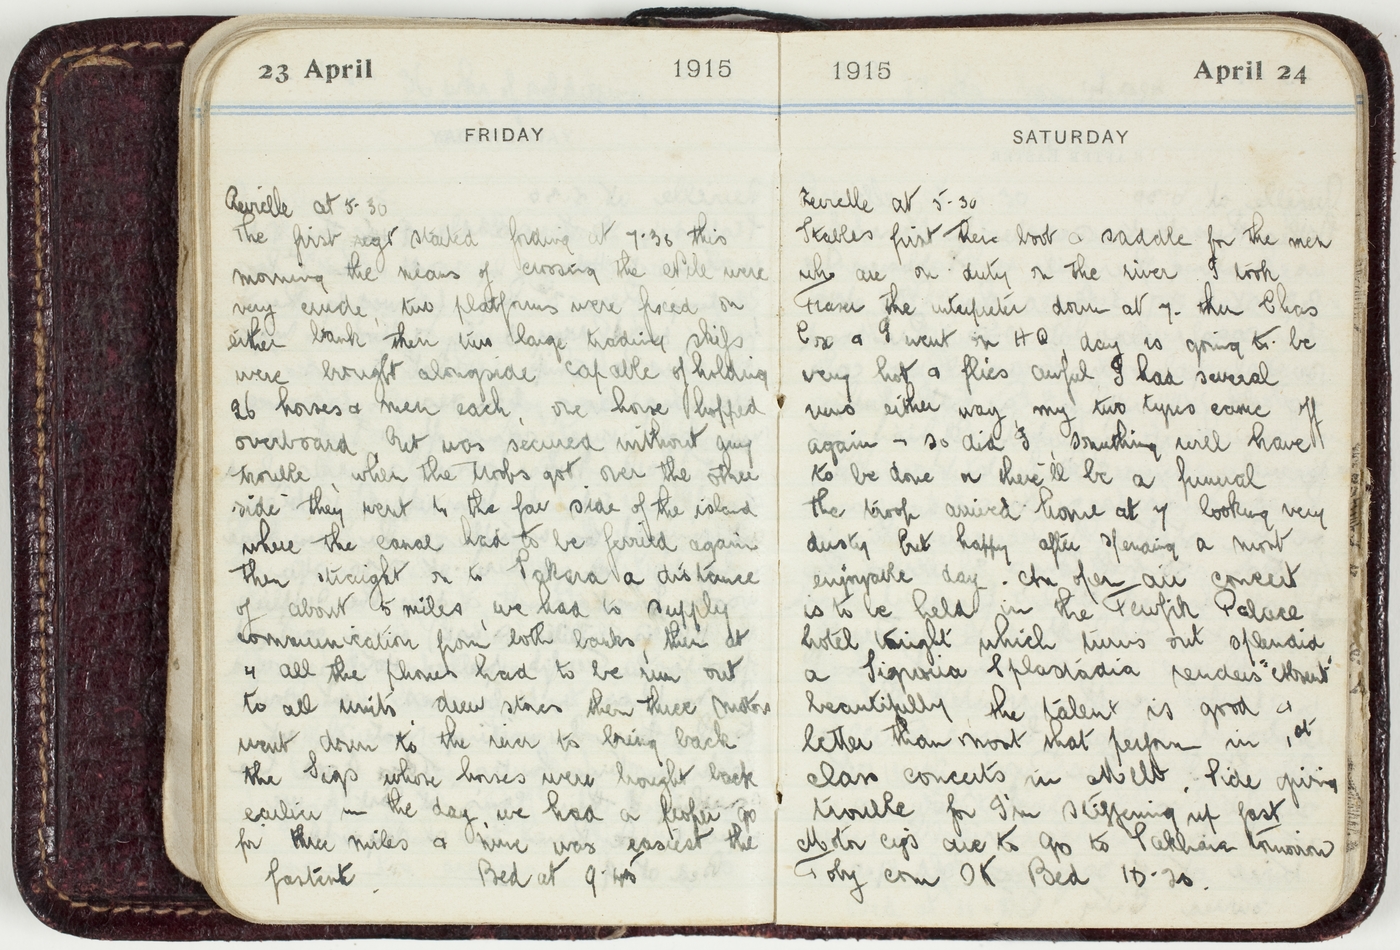 23 April 1915
FRIDAY
Reveille at 5-30
The first regt started fording at 7-30 this
morning the means of crossing the Nile were
very crude, two platforms were fixed on
either bank then two large trading ships
were brought alongside capable of holding
26 horses & men each, one horse hopped
overboard but was secured without any
trouble, when the troops got over the other
side they went to the far side of the island
where the canal had to be ferried again
then straight on to Sakara a distance
of about 5 miles, we had to supply
communication from both banks, then at
4 all the phones had to be run out
to all units, drew stores then three motors
went down to the river to bring back
the Sigs whose horses were brought back
earlier in the day, we had a proper go
for three miles & mine was easiest the
fastest. Bed at 9.45
1915 April 24
SATURDAY
Reveille at 5-30
Stables first then boot & saddle for the men
who are on duty on the river I took
Fraser the interpreter down at 7. then Chas
Cox & I went on HQ, day is going to be
very hot & flies awful, I had several
runs either way, my two tyres came off
again & so did I, something will have
to be done or there'll be a funeral
the troop arrived home at 7 looking very
dusty but happy after spending a most
enjoyable day. An open air concert
is to be held in the Tewfik Palace
hotel tonight which turns out splendid
a Signoria renders
beautifully, the talent is good &
better than most that perform in 1st
class concerts in Melb. Side giving
trouble for I'm stiffening up fast
Motor cigs are to go to tomorrow
Toby com OK Bed 10-30.